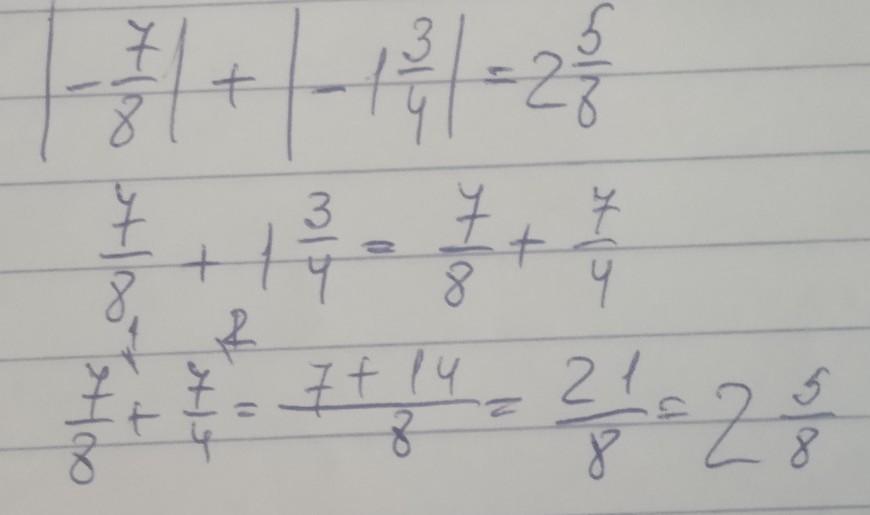 |-7/8| + |-1 3/4| = 2 5/8
7/8 + 1 3/4 = 7/8 + 7/4
1 2
7/8 + 7/4 = 7+14/8 = 21/8 = 2 5/8